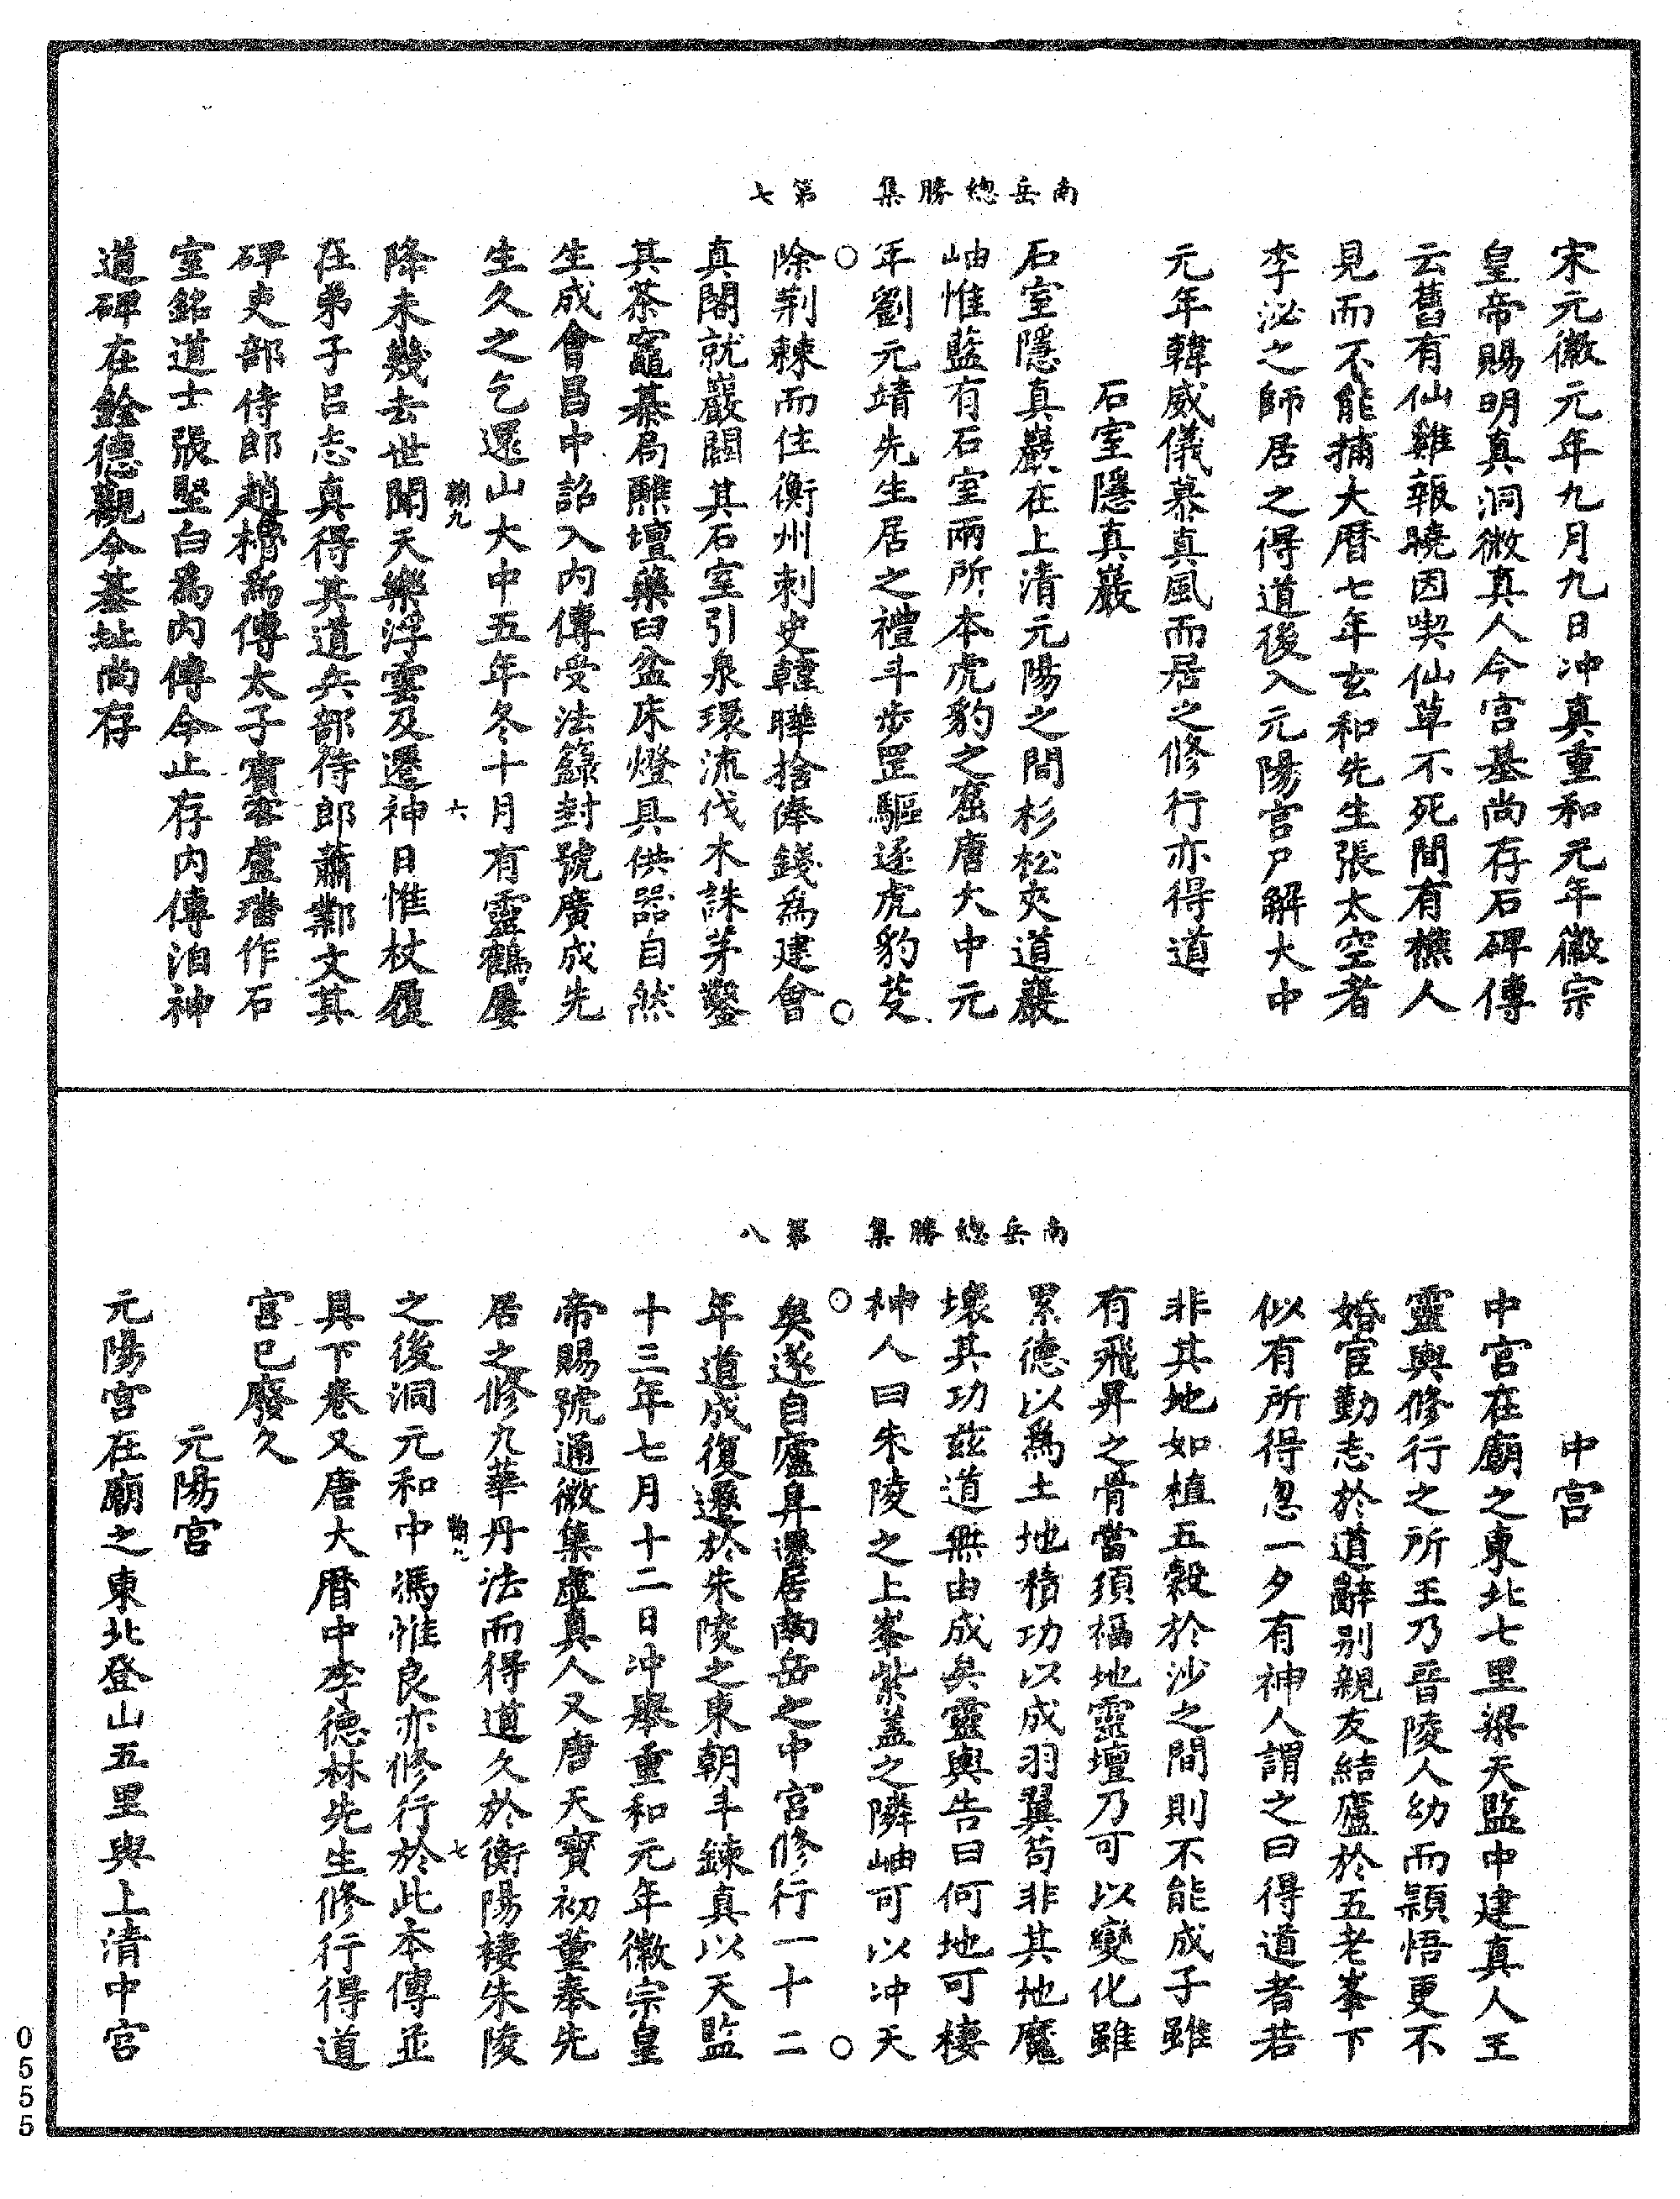 南岳總勝集　第七
宋元徽元年九月九日冲真重和元年徽宗
皇帝賜明真洞微真人今宫基尚存石碑傳
云舊有仙雞報曉因喫仙草不死間有樵人
見而不能捕大曆七年玄和先生張太空者
李泌之師居之得道後入元陽宫尸解大中
元年韓威儀慕真風而居之修行亦得道
石室隱真巖
石室隱真巖在上清元陽之間杉松夾道巖
岫惟藍有石室兩所本虎豹之窟唐大中元
年劉元靖先生居之禮斗步罡驅逐虎豹芟
除荆棘而住衡州刺史韓曄捨俸錢為建會
真閣就巖闢其石室引泉環流伐木誅茅鑿
其茶竈棊局醮壇藥臼盆床燈具供器自然
生成會昌中詔入内傳受法籙封號廣成先
生久之乞還山大中五年冬十月有靈鶴屢
降未幾去世聞天樂浮雲及遷神日惟杖履
在弟子吕志真得其道兵部侍郎蕭鄴文其
碑吏部侍郎趙櫓為傳太子賓客盧璠作石
室銘道士張堅白為内傳今止存内傳洎神
道碑在銓德觀今基址尚存
南岳總勝集　第八
中宫
中宫在廟之東北七里梁天監中建真人王
靈輿修行之所王乃晋陵人幼而穎悟更不
婚宦勤志於道辭别親友結廬於五老峯下
似有所得忽一夕有神人謂之曰得道者若
非其地如植五榖於沙之間則不能成子雖
有飛昇之骨當須福地靈壇乃可以變化雖
累德以為土地積功以成羽翼苟非其地魔
壞其功兹道無由成矣靈輿告曰何地可棲
神人曰朱陵之上峯紫蓋之隣岫可以冲天
矣遂自廬阜遷居南岳之中宫修行一十二
年道成復遷於朱陵之東朝斗鍊真以天監
十三年七月十二日冲舉重和元年徽宗皇
帝賜號通微集虚真人又唐天寶初董奉先
居之修九華丹法而得道久於衡陽棲朱陵
之後洞元和中馮惟良亦修行於此本傳並
具下卷又唐大曆中李德林先生修行得道
宫已廢久
元陽宫
元陽宫在廟之東北登山五里與上清中宫
0555